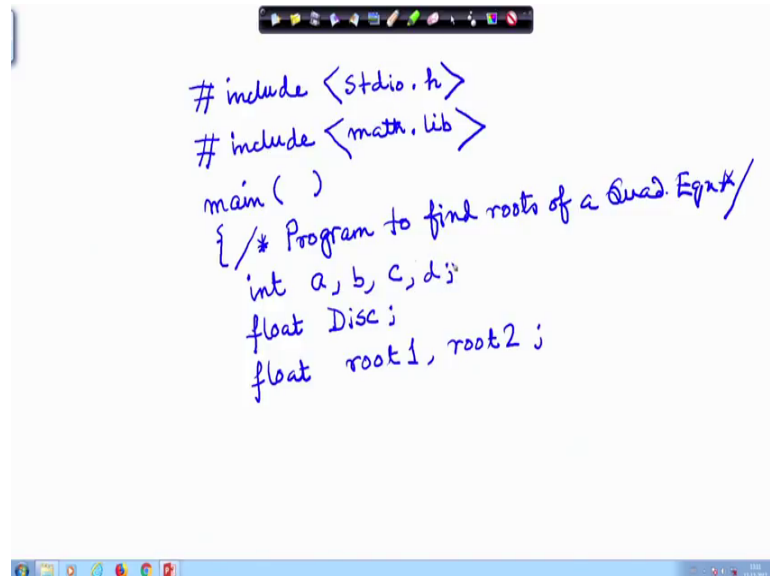 # include <stdio.h>
# include <math.lib>
main( )
{ /* Program to find roots of a Quad. Eqn*/
int a, b, c, d;
float Disc;
float root1, root2;